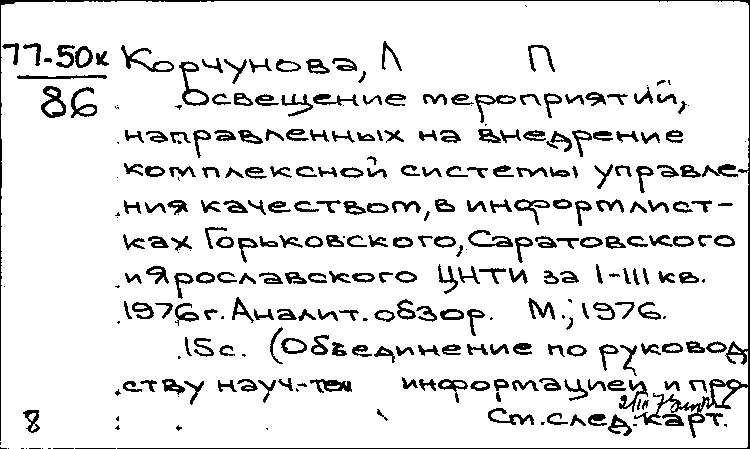 77-50к Корчунова, Л П
86 Освещение мероприятий,
направленных на внедрение
комплексной системы управле-
ния качеством, в информлист-
ках Горьковского, Саратовского
и Ярославского ЦНТИ за I-III кв.
1976 г. Аналит. обзор. М., 1976.
15с. (Объединение по руковод-
ству науч.-техн информацией и про-
8 См. след. карт.